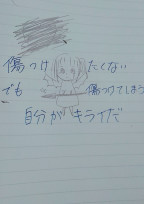 傷つけたくない
でも 傷つけてしまう
自分がキライだ